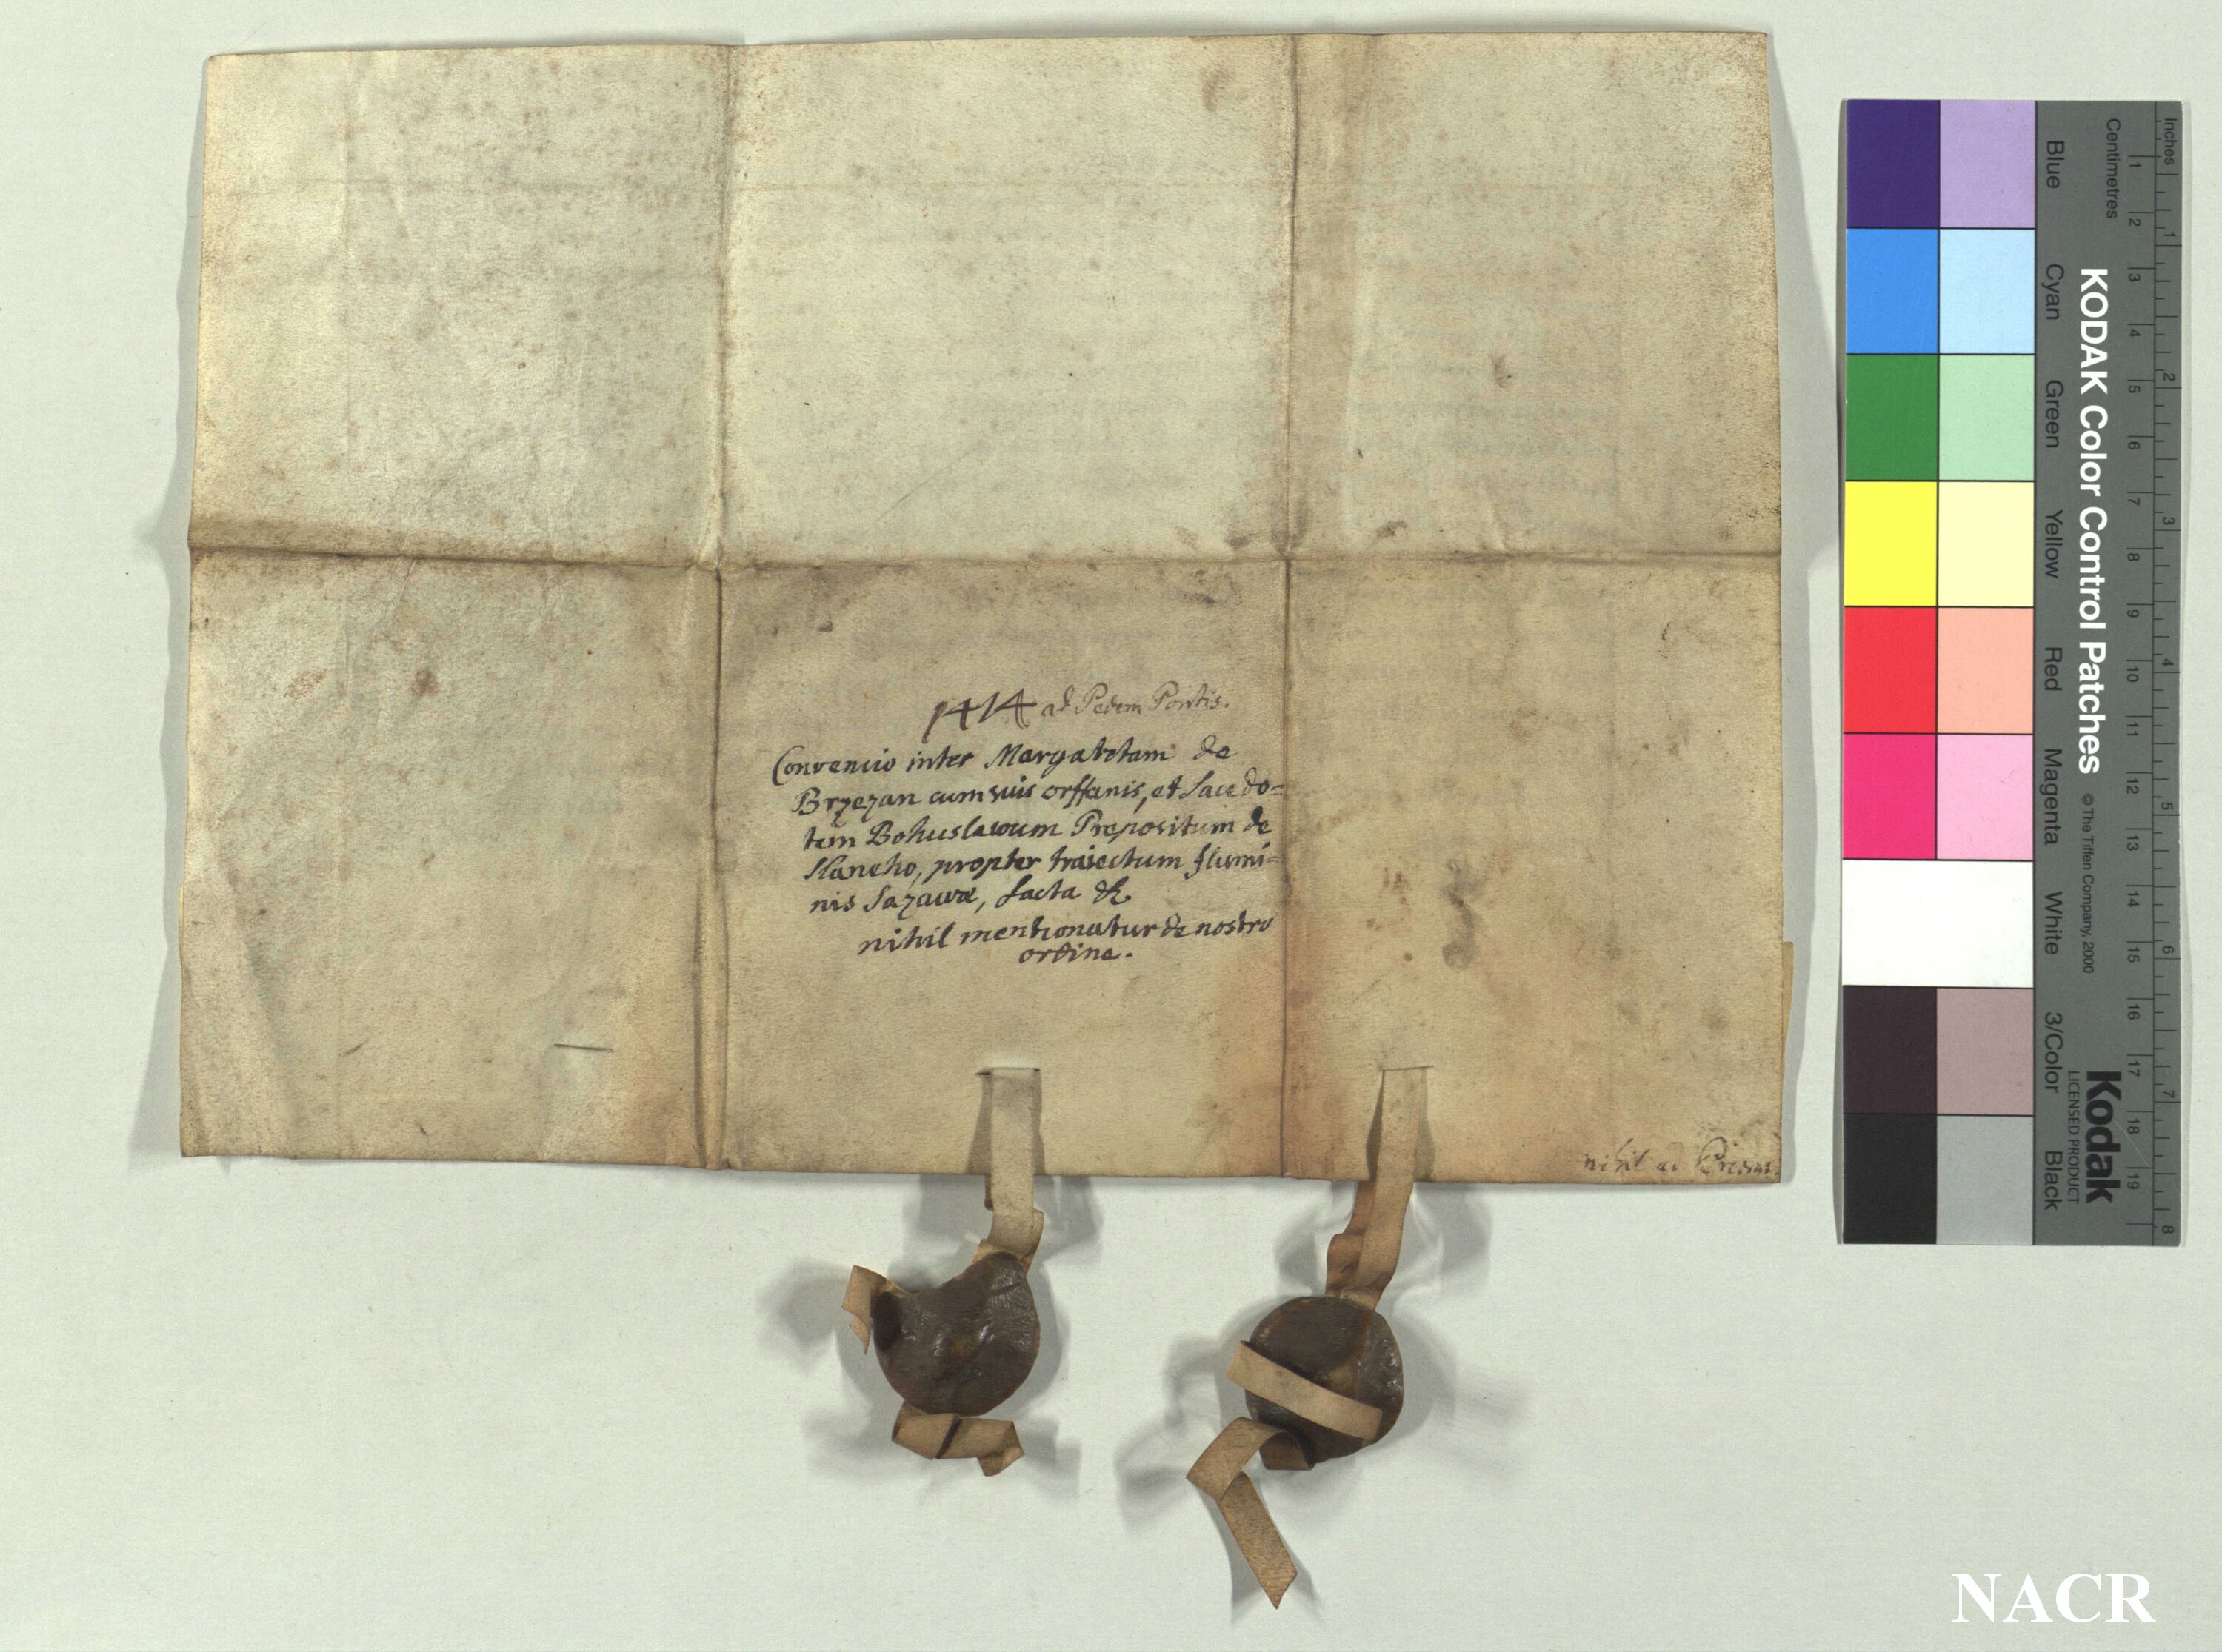 1414 ad Pedem Pontis.
Convencio inter Margaretam de
Brzezan cum suis orffanis, et Sacedo=
tem Bohuslawum Prepositum de
propter traiectum flumi=
nis Sazawæ, facta &c.
nihil mentionatur de nostro
ordine.
nihil ad
Inches
Centimetres
1 2 3 4 5 6 7 8 9 10 11 12 13 14 15 16 17 18 19
1 2 3 4 5 6 7 8
KODAK Color Control Patches
© The Tiffen Company, 2000
Kodak
LICENSED PRODUCT
Blue
Cyan
Green
Yellow
Red
Magenta
White
3/Color
Black
NACR